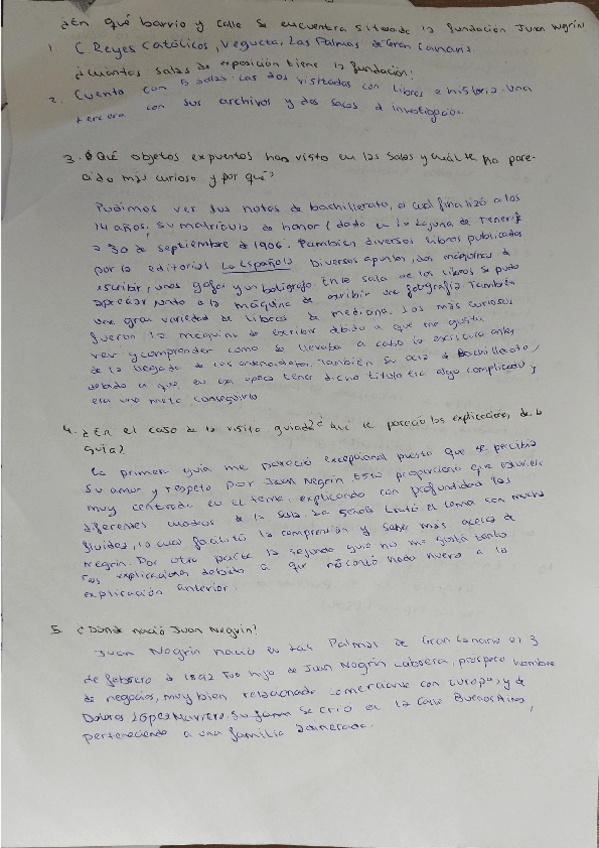 ¿En qué barrio y calle se encuentra situada la fundación Juan Negrín
1. C Reyes Católicos, Vegueta, Las Palmas de Gran Canaria.
¿Cuántas salas de exposición tiene la fundación?
2. Cuenta con 5 salas. Las dos visitadas con libros e historia. Una
tercera con sus archivos y dos de investigación.
3. ¿Qué objetos expuertos han visto en las salas y cuál te ha pare-
cido más curioso y por qué?
Pudimos ver sus notas de bachillerato, el cual finalizó a los
14 años, su matrícula de honor (dado en La Laguna de Tenerife
a 30 de septiembre de 1906. También diversos libros publicados
por la editorial La Española. Diversos apuntes, dos máquinas de
escribir, unas gafas y un bolígrafo. En la sala de los libros se pudo
apreciar junto a la máquina de escribir una fotografía. También
una gran variedad de libros de medicina. Los más curiosos
fueron la máquina de escribir debido a que me gusta
ver y comprender como se llevaba a cabo la escritura antes
de la llegada de los ordenadores. También su acta de Bachillerato,
debido a que en esa época tener dicho título era algo complicado y
era una meta conseguirlo
4. ¿En el caso de la visita guiada? ¿Qué te pareció las explicaciones de la
guía?
La primera guía me pareció excepcional puesto que se percibía
su amor y respeto por Juan Negrín. Esto proporcionó que estuviera
muy centrada en el tema, explicando con profundidad los
diferentes de la sala. La señora trató el tema con mucha
fluidez, lo cual facilitó la comprensión y saber más acerca de
Negrín. Por otra parte la segunda guía no me gustó tanto
las explicaciones debido a que no contó nada nuevo a la
explicación anterior.
5. ¿Dónde nació Juan Negrín?
Juan Negrín nació en Las Palmas de Gran Canaria el 3
de febrero de 1892. Fue hijo de Juan Negrín Cabrera, próspero hombre
de negocios, muy bien relacionado comerciante con Europa, y de
Dolores López Marrero. Su fama se crió en la Calle Buenos Aires,
perteneciendo a una familia adinerada.